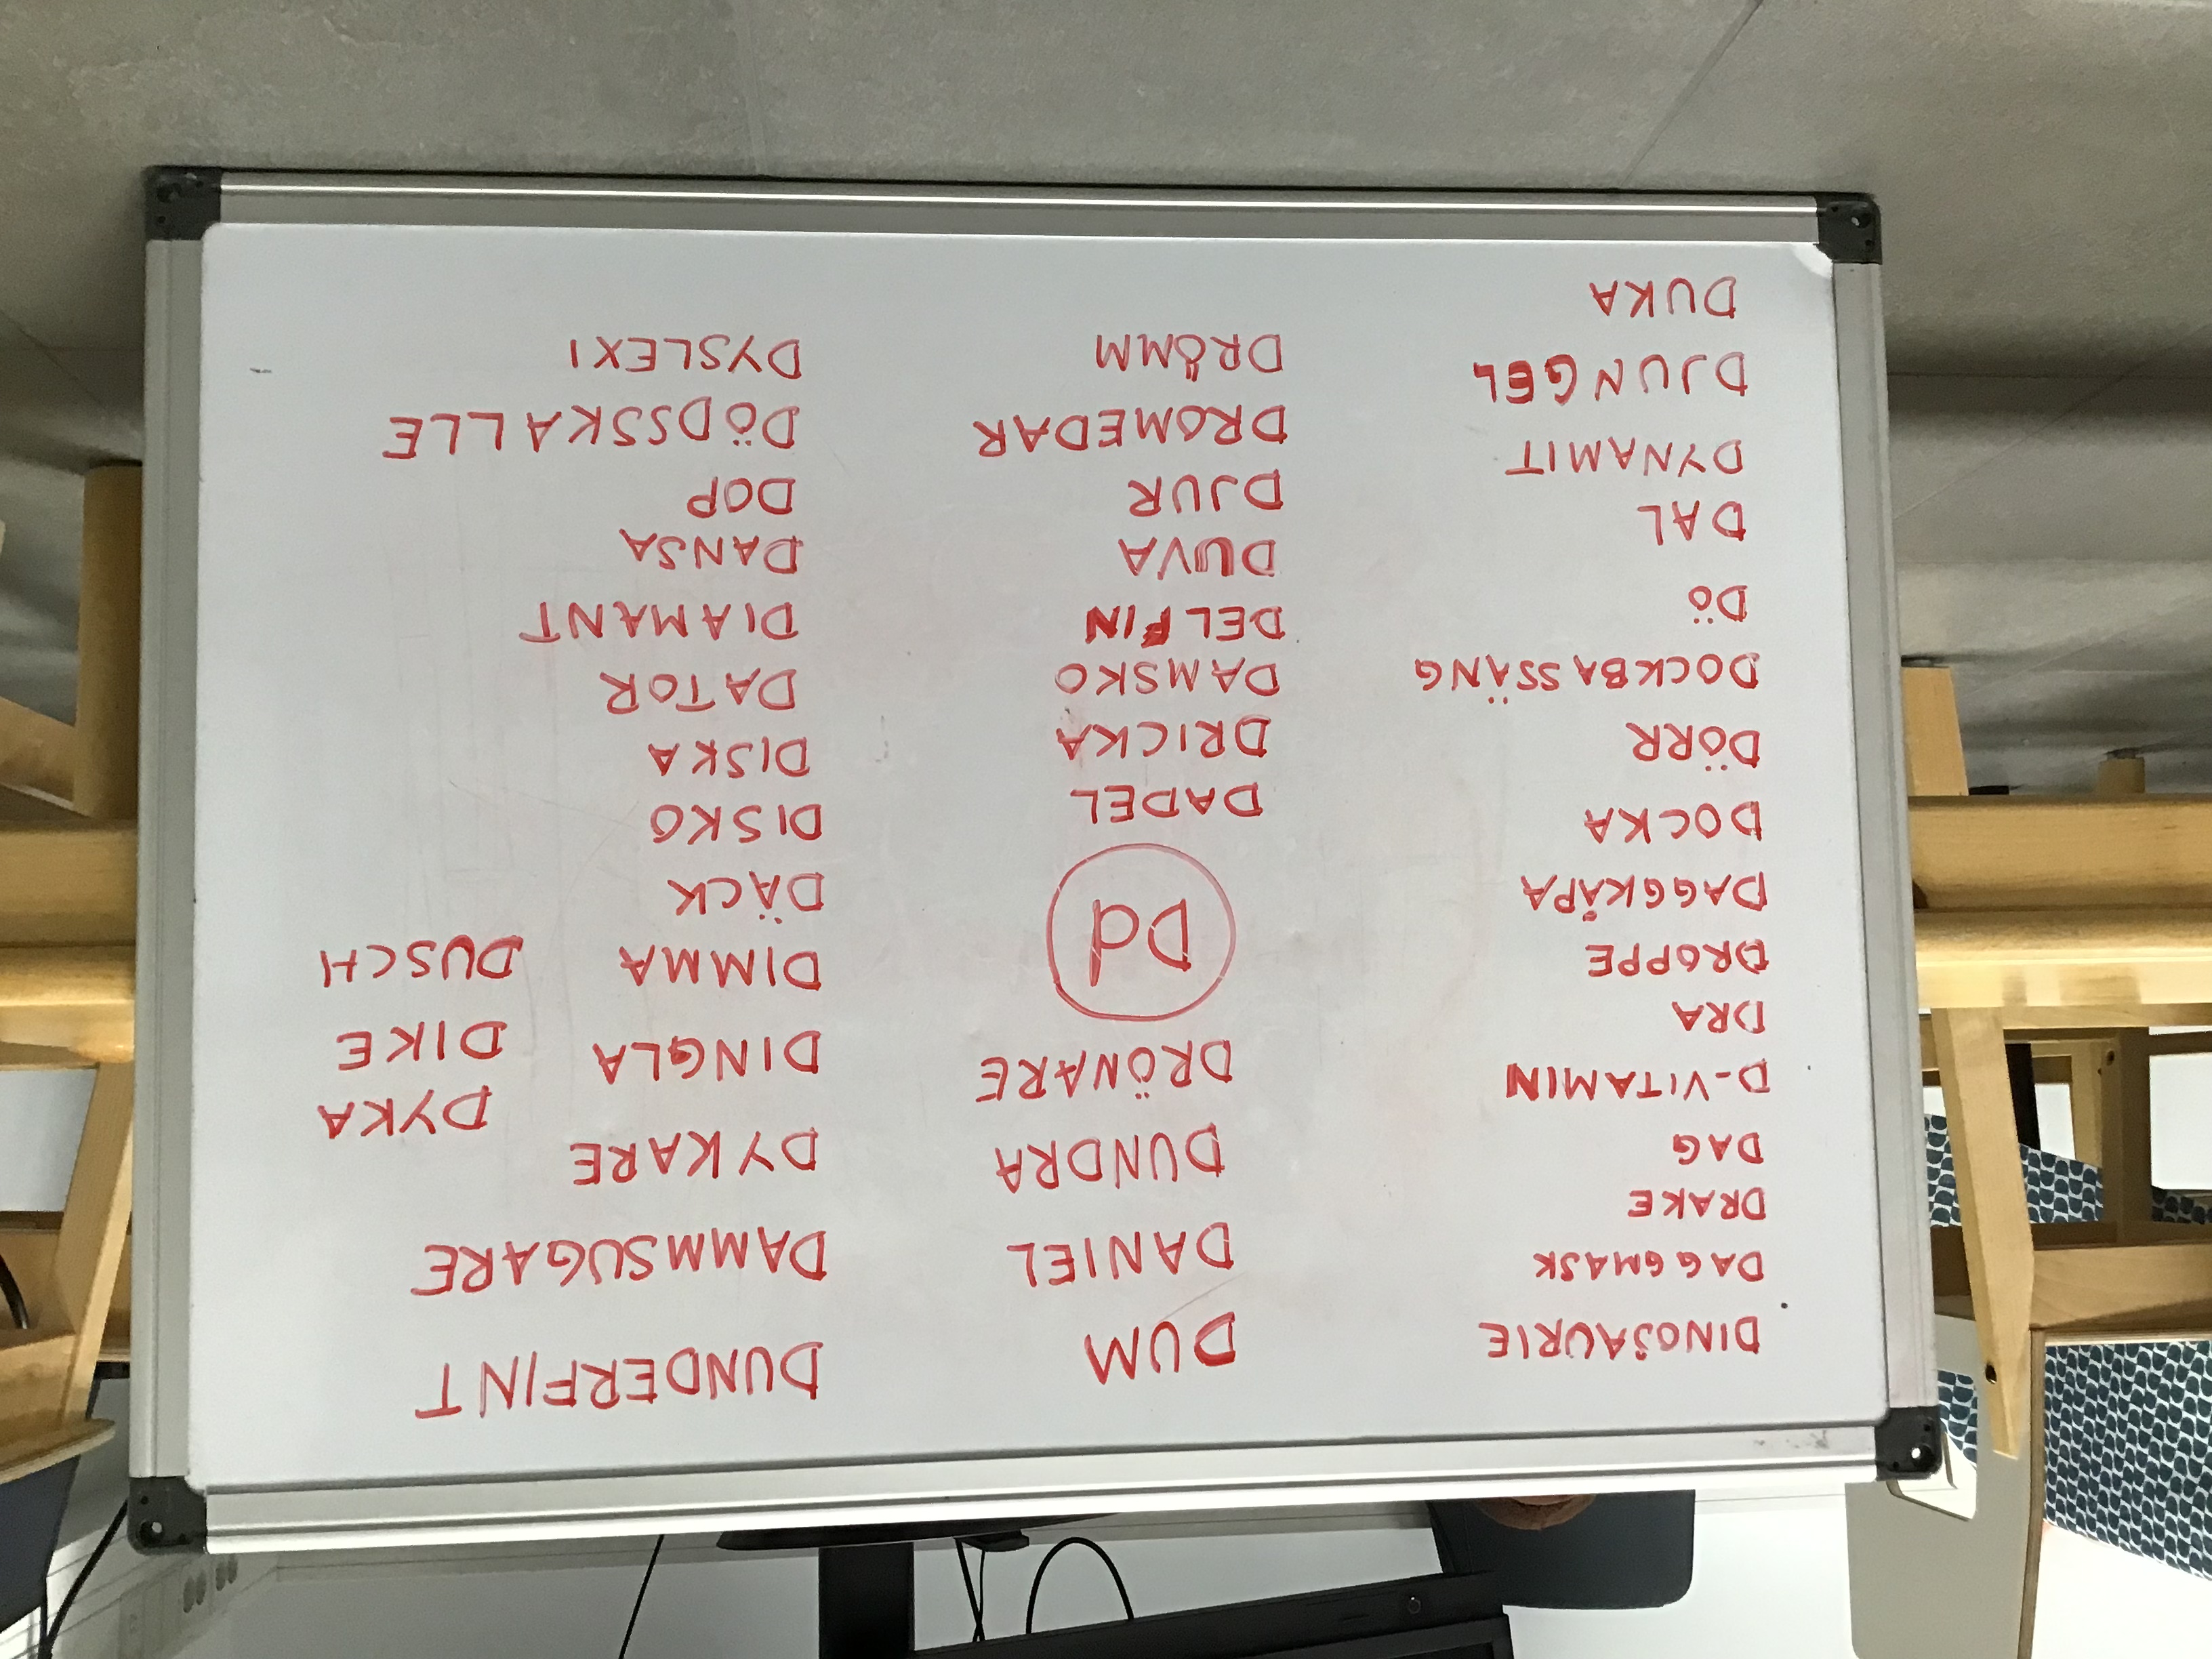 DINOSAURIE
DAGGMASK
DRAKE
DAG
D-VITAMIN
DRA
DROPPE
DAGGKÅPA
DOCKA
DÖRR
DOCKBASSÄNG
DÖ
DAL
DYNAMIT
DJUNGEL
DUKA
DUM
DANIEL
DUNDRA
DRÖNARE
Dd
DADEL
DRICKA
DAMSKO
DELFIN
DUVA
DJUR
DROMEDAR
DRÖMM
DUNDERFINT
DAMMSUGARE
DYKARE
DINGLA
DIMMA
DÄCK
DISKO
DISKA
DATOR
DIAMANT
DANSA
DOP
DÖDSSKALLE
DYSLEXI
DYKA
DIKE
DUSCH